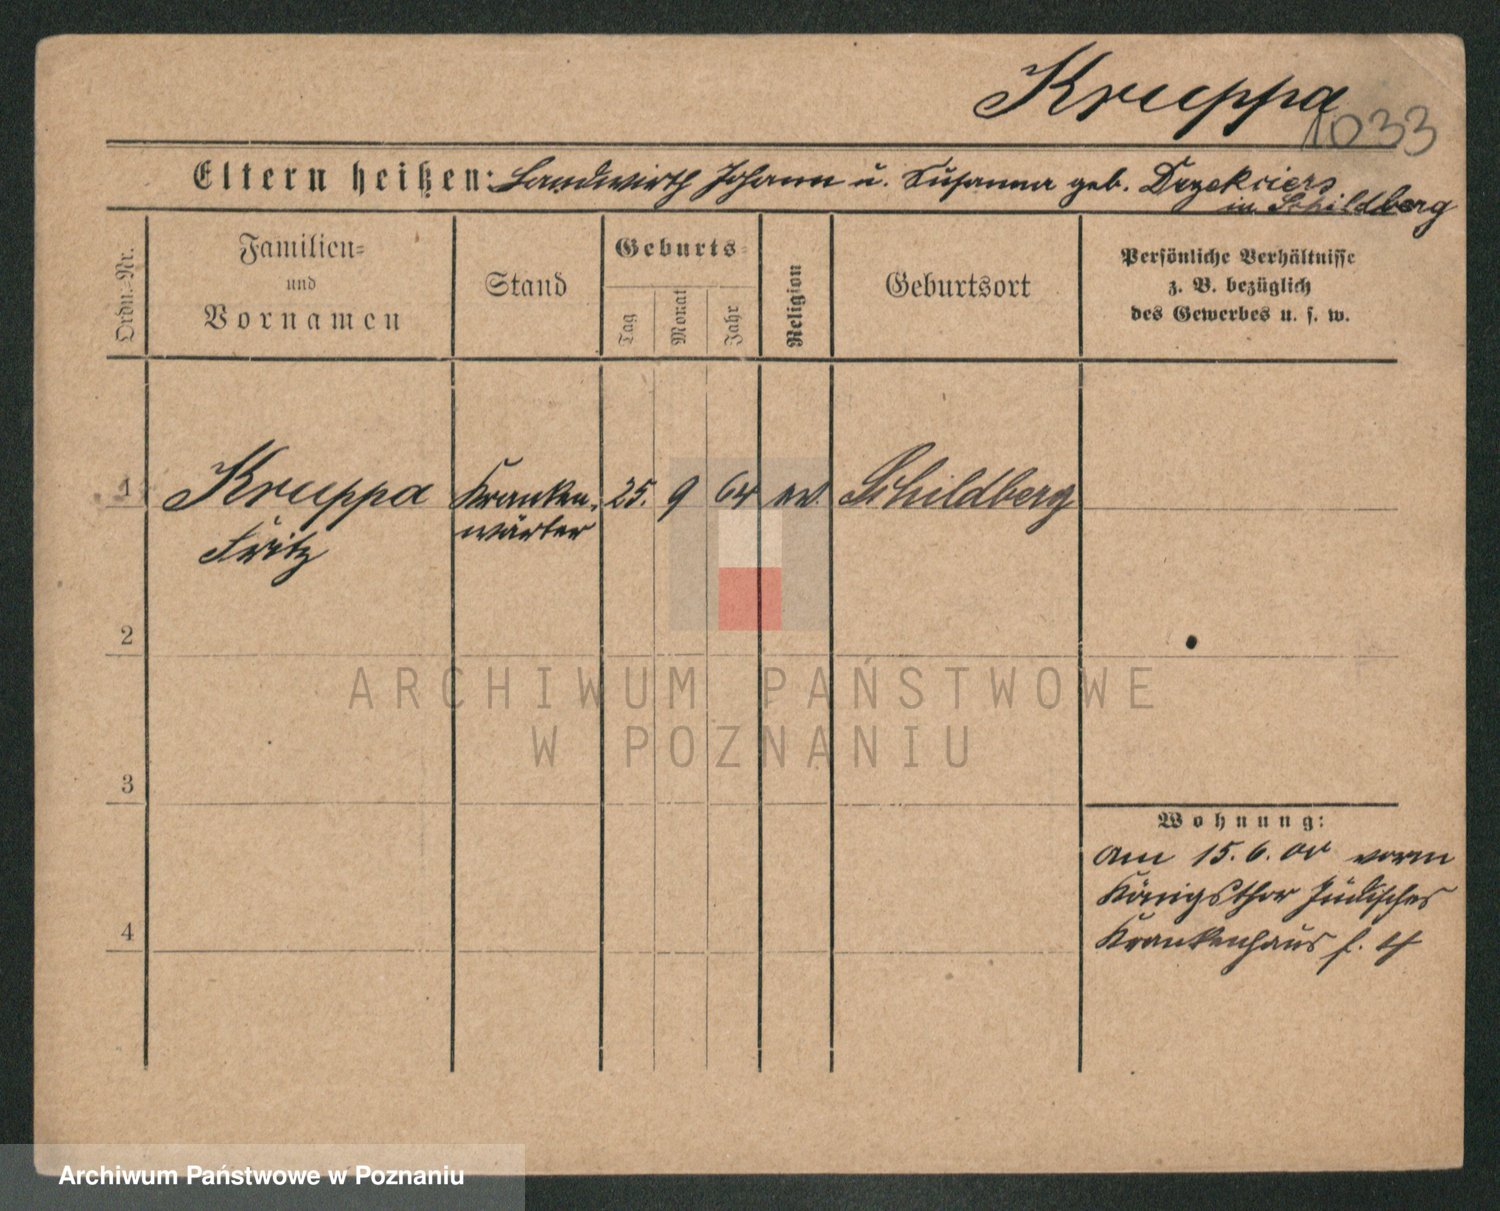 Kruppa
1033
Eltern heißen: Landwirth Johann u. Susanna geb.
in Schildberg
Ordn.-Nr.
Familien-
und
Vornamen
Stand
Geburts-
Tag
Monat
Jahr
Religion
Geburtsort
Persönliche Verhältnisse
z. B. bezüglich
des Gewerbes u. s. w.
1 Kruppa Kranken- 25. 9 64 ev. Schildberg
Fritz wärter
2
3
4
Wohnung:
am 15. 6. vorm
Königsthor Jüdisches
Krankenhaus
ARCHIWUM PAŃSTWOWE
W POZNANIU
Archiwum Państwowe w Poznaniu